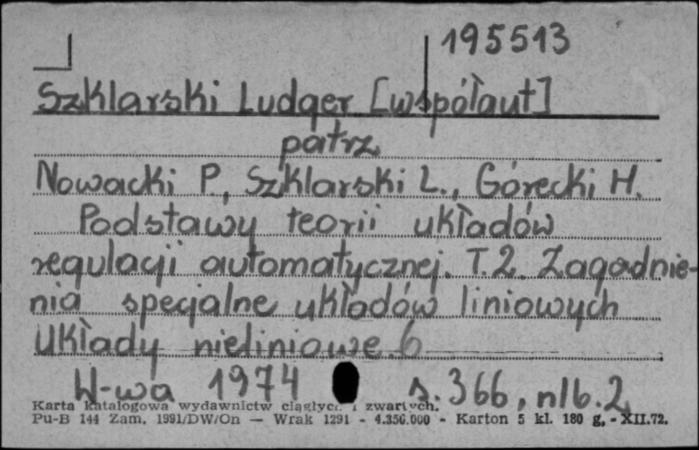 195513
Szklarski Ludger [współaut]
patrz
Nowacki P., Szklarski L., Górecki H.
Podstawy teorii układów
regulacji automatycznej. T.2. Zagadnie-
nia specjalne układów liniowych
Układy nieliniowe.
W-wa 1974 s. 366, nlb. 2
Karta katalogowa wydawnictw ciągłych i zwartych.
Pu-B 144 Zam. 1991/DW/On — Wrak 1291 - 4.350.000 - Karton 5 kl. 180 g. - XII.72.